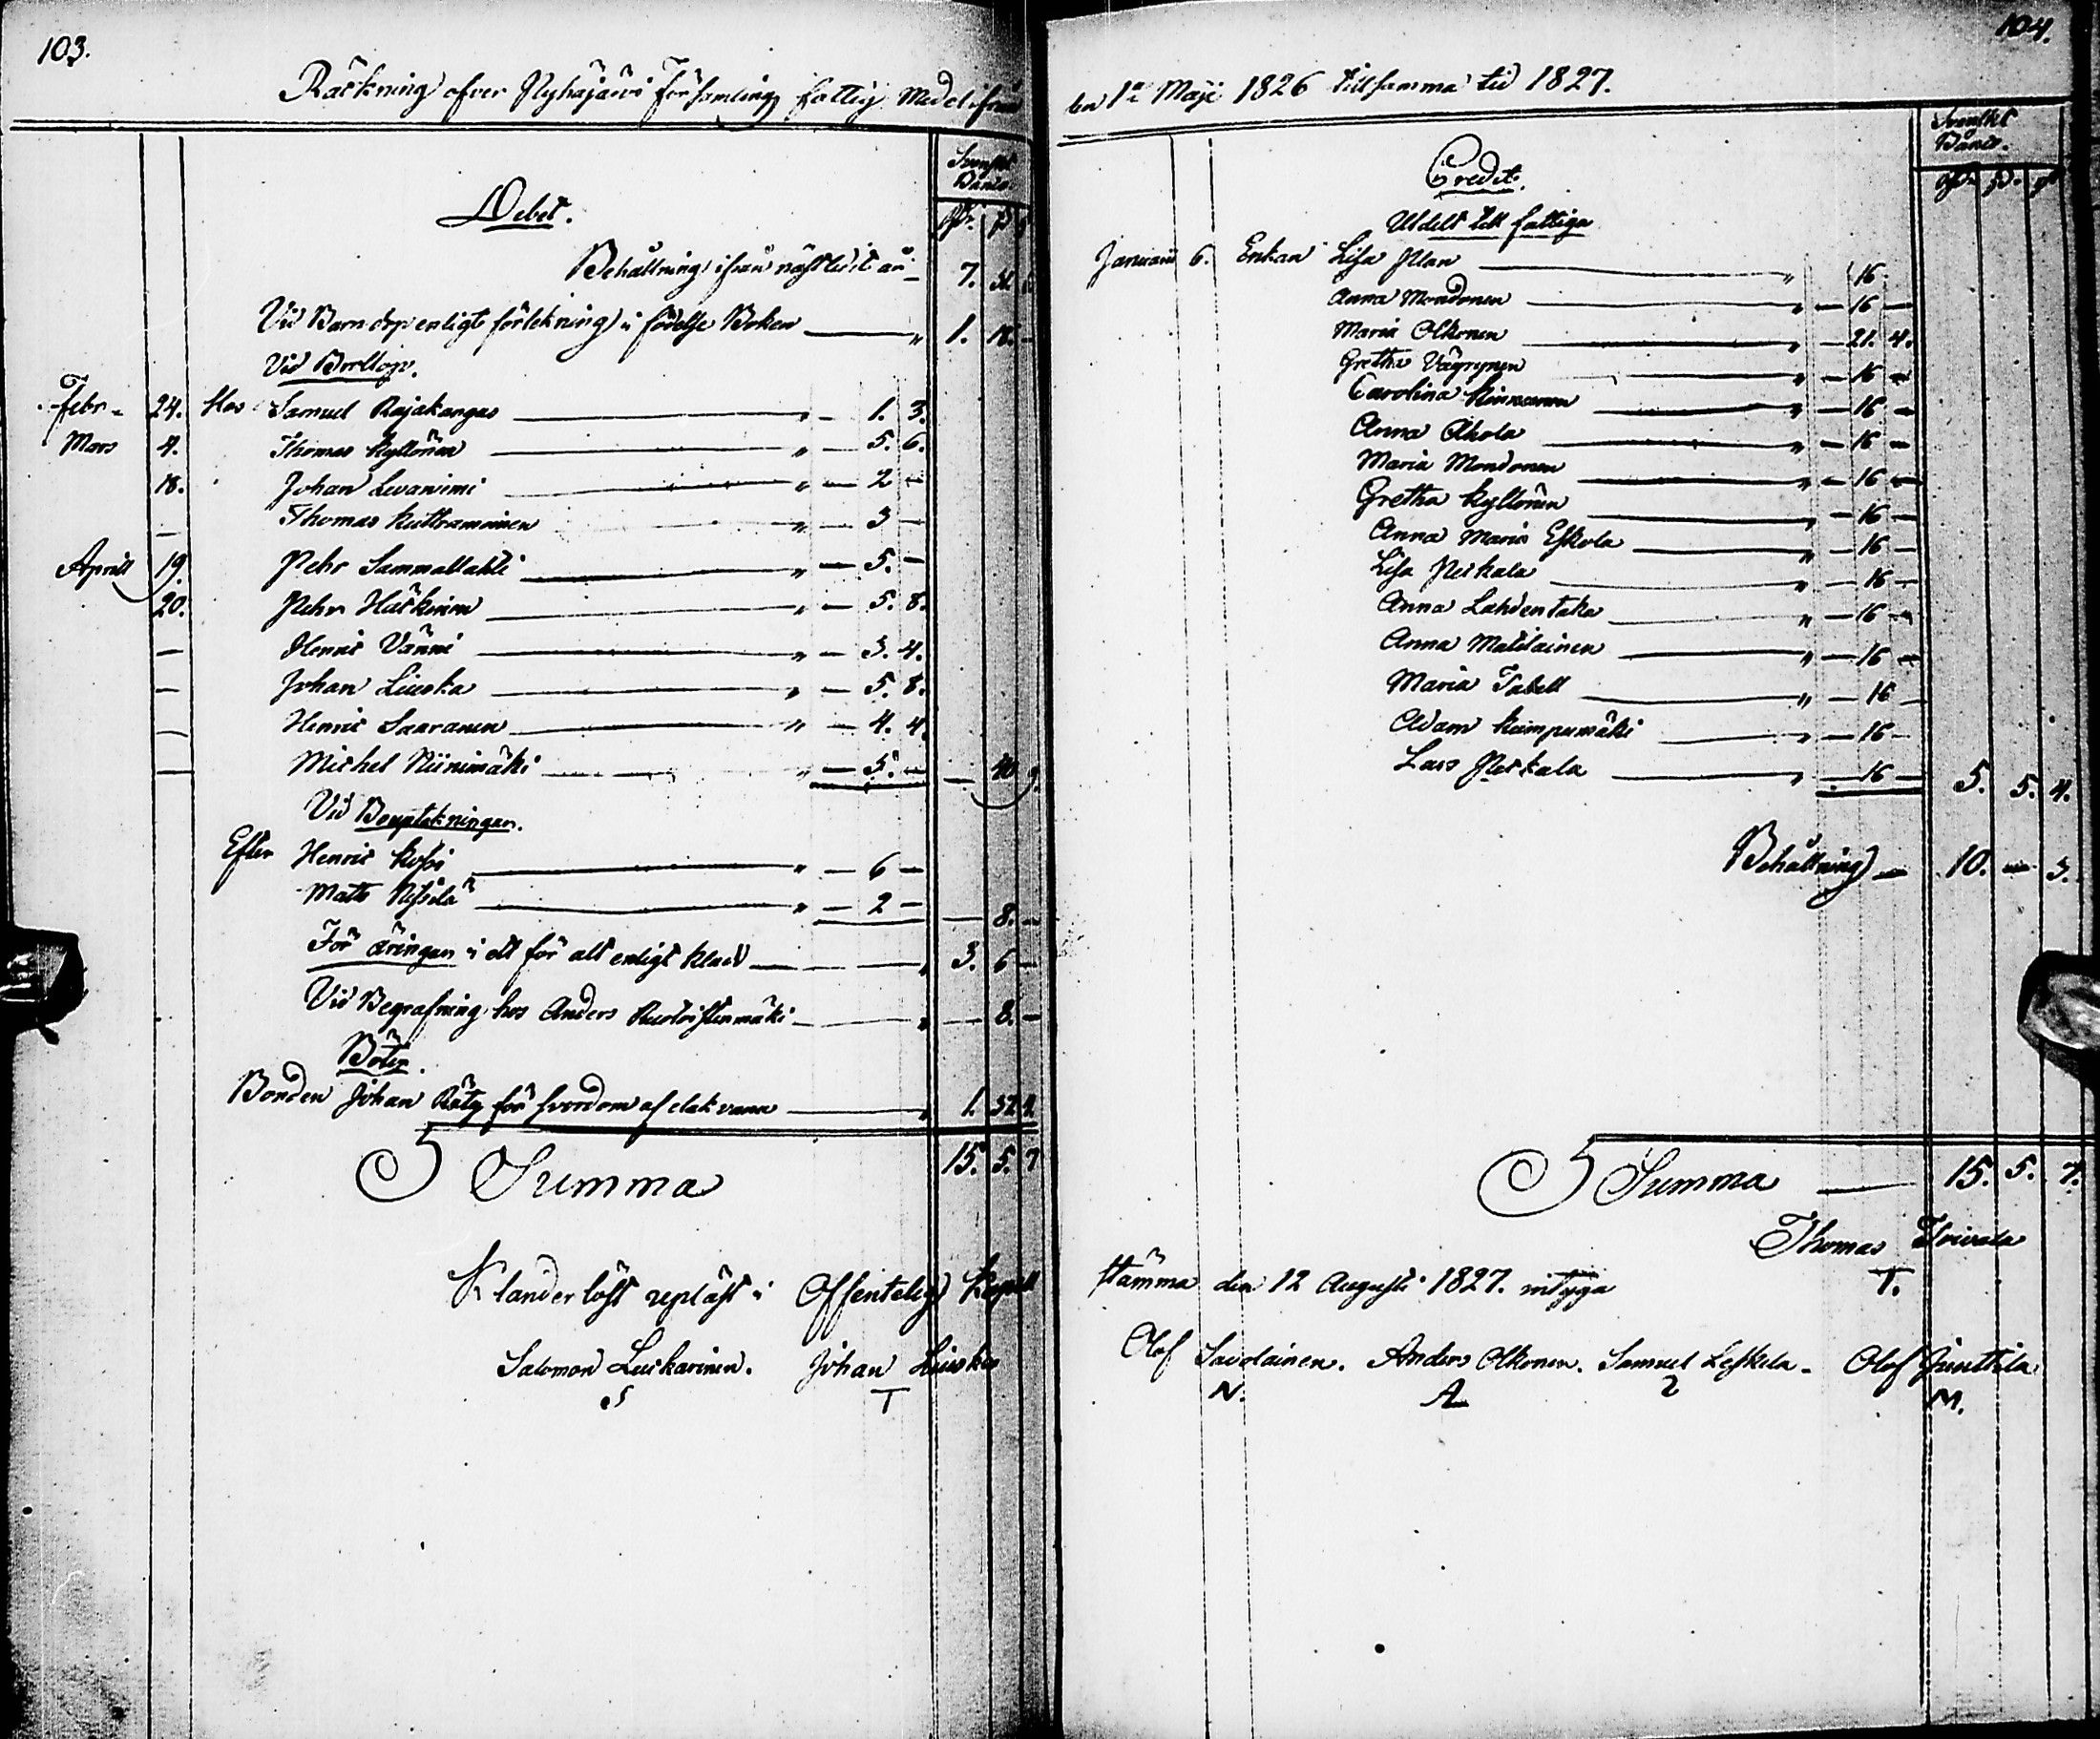 103.
Räkning öfver Pyhäjärvi Församlings fattig Medel ifrån
Svenskt Banco.
Debet.
Behållning ifrån nästledit år 7.
Vid Barndop enligt förtekning i födelse Boken 1. 18. -
Vid Bröllop.
Febr. 24. Hos Samuel Rajakangas " - 1. 3.
Mars 4. Thomas Kyllönen " - 5. 6.
18. Johan Levaniemi " - 2 -
- Thomas " - 3 -
Aprill 19. Pehr Sammallahti " - 5. -
20. Pehr Häkkinen " - 5. 8.
- Henric Vänni " - 3. 4.
- Johan Liuska " - 5. 8.
- Henric Saaranen " - 4. 4.
- Michel Niinimäki " - 5. - - 40 9.
Vid Bouptekningar.
Efter Henric " - 6 -
Matts " - 2 - - 8. -
För äringen i ett för alt enligt klad " 3. 6 -
Vid Begrafning hos Anders " - 8. -
Böter.
Bonden Johan Räty för svordom af elak vana " 1. 32 4.
Summa 15. 5. 7
Klanderlöst upläst i Offentelig Kapell
Salomon Leskarinen. Johan Liuska
S T
104.
den 1a Maji 1826 till samma tid 1827.
Svenskt Banco.
Credit.
Utdelt till fattiga
Januarii 6. Enkan Lisa " 16
Anna Mondonen " - 16 -
Maria Olkonen " - 21. 4.
Gretha Väyrynen " - 16 -
Carolina Kinnunen " - 16 -
Anna Ahola " - 16 -
Maria Mondonen " - 16 -
Gretha Kyllönen " - 16 -
Anna Maria Eskola " - 16 -
Lisa Perkala " - 16 -
Anna Lahdentaka " - 16 -
Anna Matilainen " - 16 -
Maria Tabell " - 16 -
Adam Kumpumäki " - 16 -
Lars Perkala " - 16 - 5. 5. 4.
Behållning - 10. - 3.
Summa 15. 5. 7.
Thomas
T.
stämma den 12 Augusti 1827. intyga
Olof Savolainen. Anders Olkonen. Samuel Leskela. Olof Junttila
N. A 2 M.